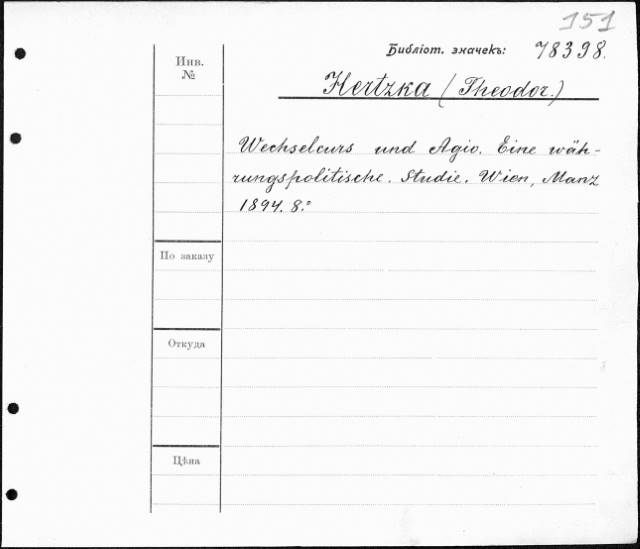 151
Библіот. значекъ: 78398.
Инв.
№
Hertzka (Theodor.)
Wechselcurs und Agio. Eine wäh-
rungspolitische. Studie. Wien, Manz
1894. 8.°
По заказу
Откуда
Цѣна